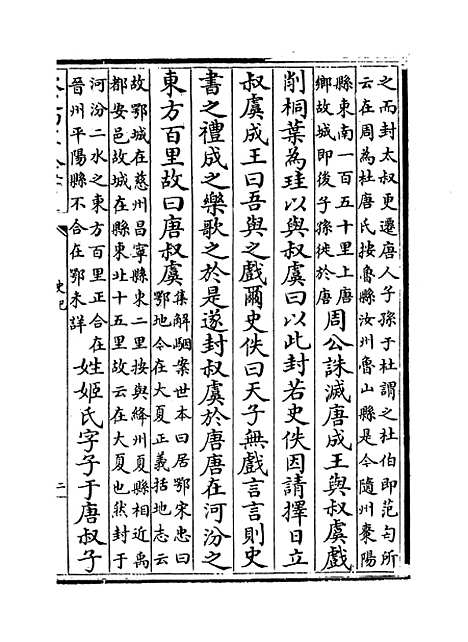 之而封太叔更遷唐人子孫于杜謂之杜伯即范匄所
云在周為杜唐氏按魯縣汝州魯山縣是今隨州棗陽
縣東南一百五十里上唐
鄉故城即後子孫徙於唐
周公誅滅唐成王與叔虞戲
削桐葉為珪以與叔虞曰以此封若史佚因請擇日立
叔虞成王曰吾與之戲爾史佚曰天子無戲言言則史
書之禮成之樂歌之於是遂封叔虞於唐唐在河汾之
東方百里故曰唐叔虞
集解駰案世本曰居鄂宋忠曰
鄂地今在大夏正義括地志云
故鄂城在慈州昌寧縣東二里按與絳州夏縣相近禹
都安邑故城在縣東北十五里故云在大夏也然封于
河汾二水之東方百里正合在
晉州平陽縣不合在鄂未詳
姓姬氏字子于唐叔子
史記
二